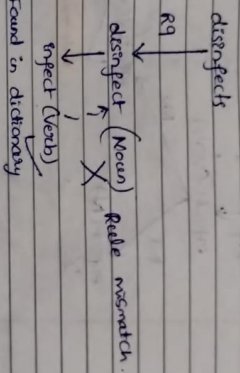 disinfects
R9
disinfect (Noun) Rule mismatch.
infect (Verb)
Found in dictionary